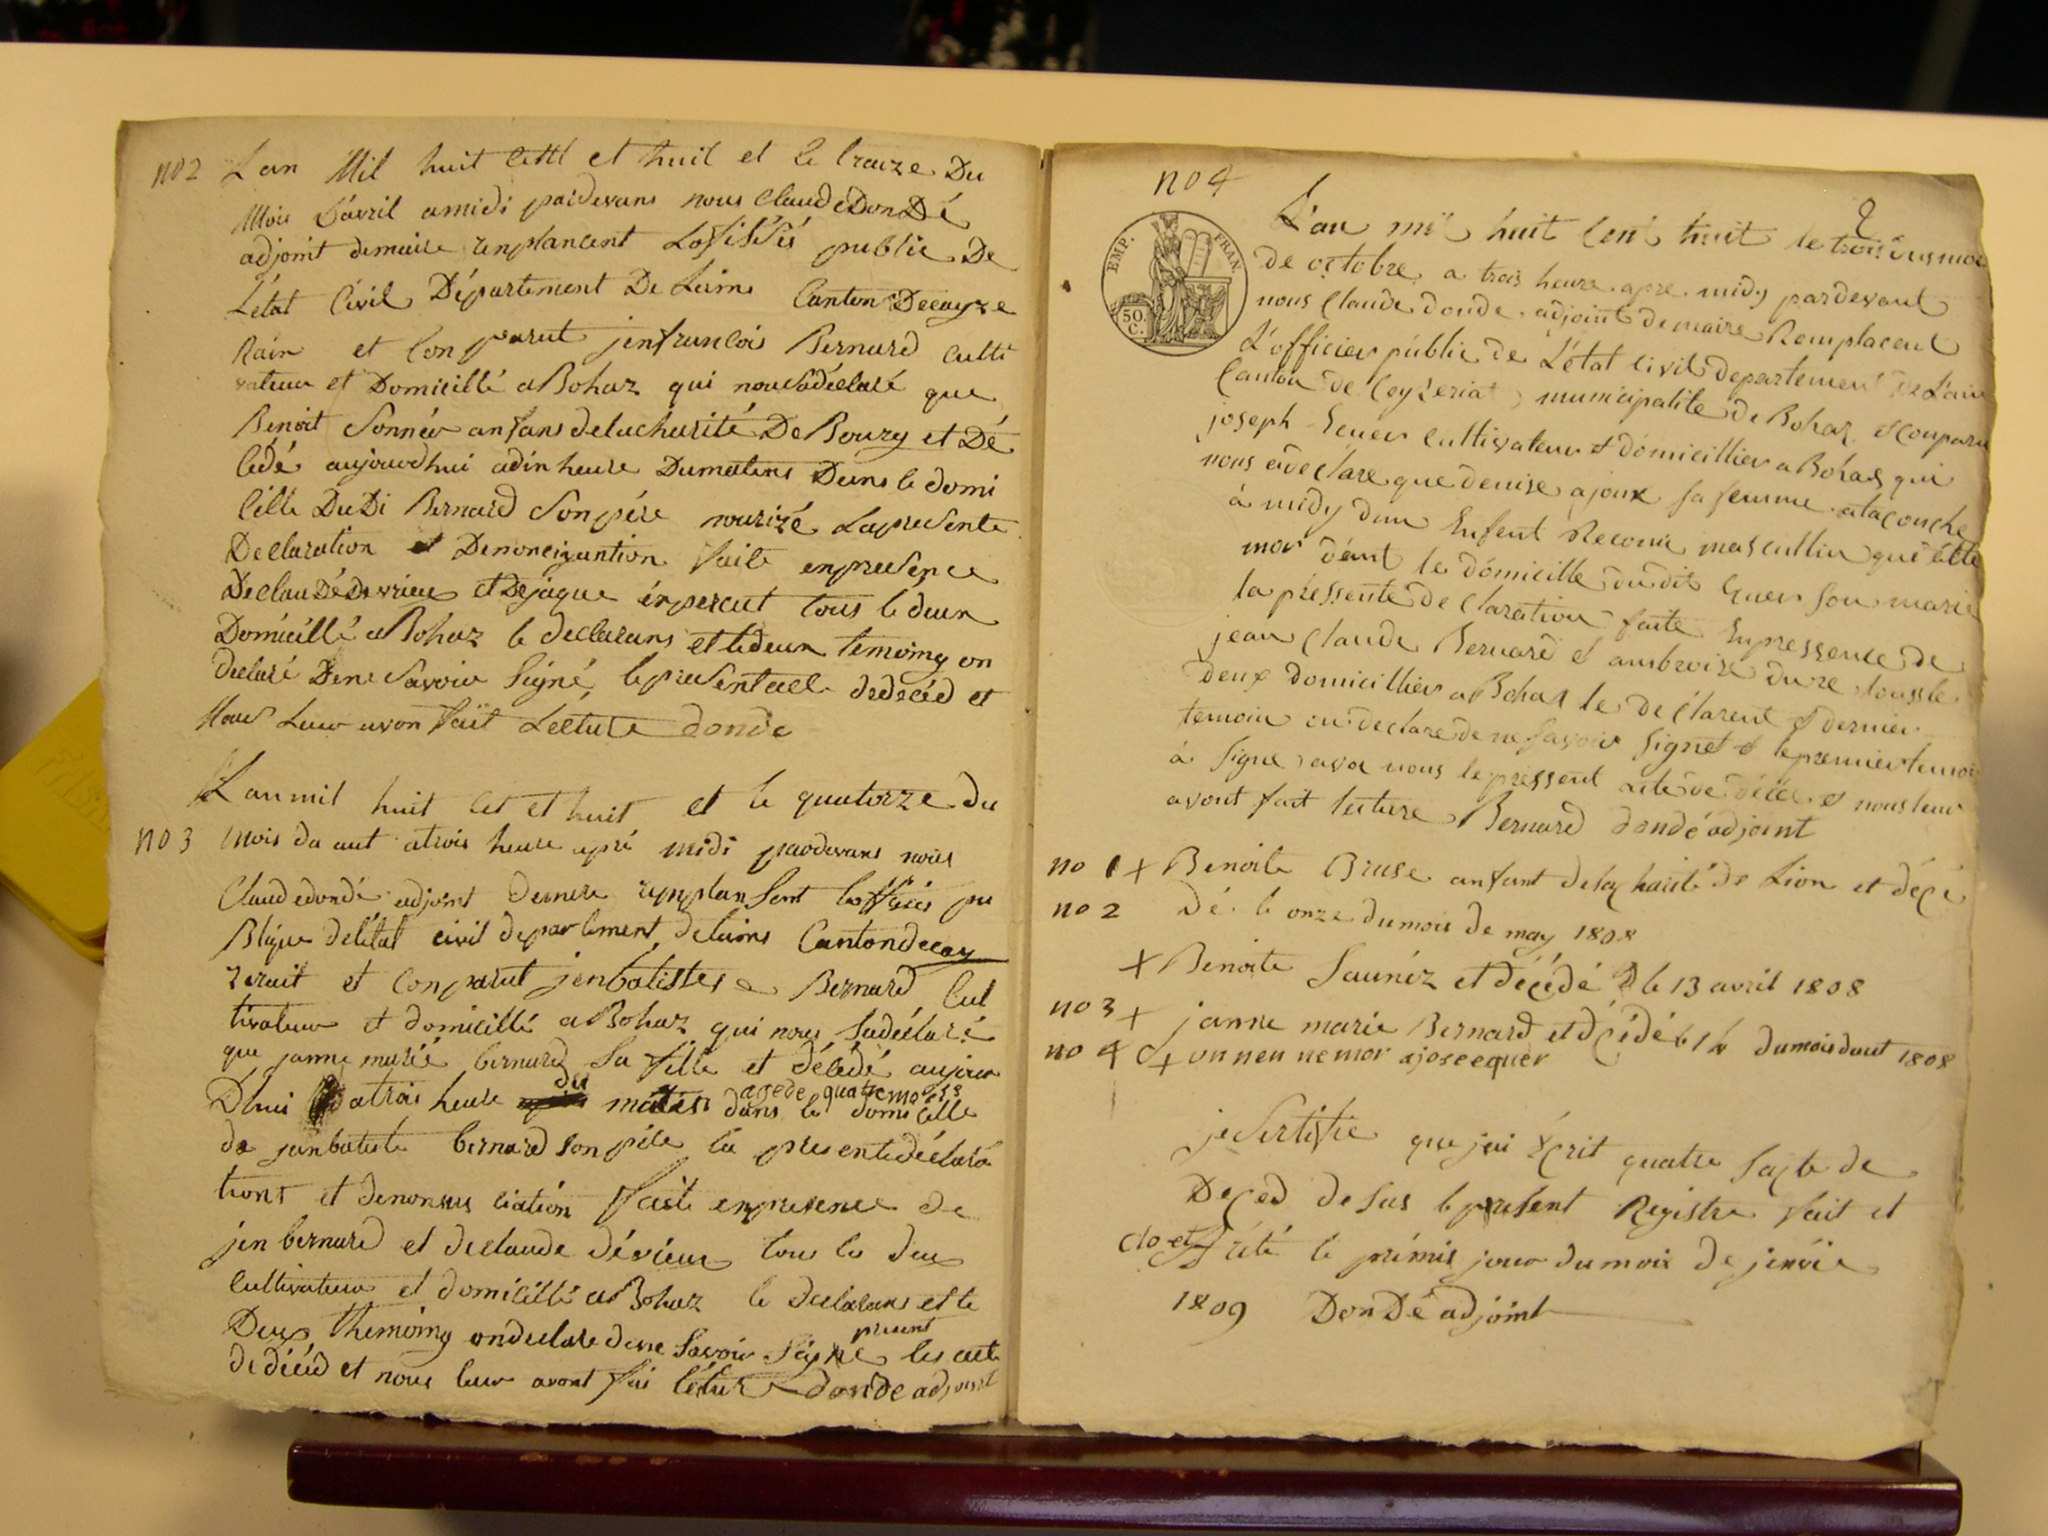 no 2 Lan Mil huit cent et huit et le traize Du
Mois D'avril a midi pardevans nous Claude Don Dé
adjoint demaire renplancent Lofisiés public De
L'état Civil Département De Lains Canton Deceyze
Rain et Conparut jenfrancois Bernard culti
vateur et Domicillé a Bohaz qui nous a déclaré que
Benoit Sonnéz anfans delacharité De Bourg et Dé
Cédé aujourdhui a heure Dumatins Dans le domi
cille Du Di Bernard Son pére nourizé La presente
Declaration et Denonciantion faite enpresence
De Claude Devrieux et De jaque tous le deux
Domicillé a Bohaz le declarans et le deux temoing on
declaré Dene Savoir Signé, le present acte dedecéd et
Nous Leur avon fait Lecture donde
Lan mil huit cet et huit et le quatorze du
no 3 mois da aut atrois heure apré midi pardevans nous
Claude dondé adjoint demere renplansent loffisiés pu
Blique delétat civil departement delains Canton decey
zeriait et Conparut jenbatiste Bernard Cul
tivateur et domicillé a Bohaz qui nous Sadéclaré
que janne marié bernard Sa fille et décédé aujour
D'hui atrois heure du matin dans le domicille
agede quatre mois
de janbatiste bernard son pére la presente déclara
tions et denonsiation faite enpresence de
jen bernard et declaude dévieux tous les deux
Cultivateur et domicillé a Bohaz le declarans et le
Deux themoing ondeclare dene Savoir Signé les acte
present
dedécéd et nous leur avont fai léture donde adjoint
no 4
2
EMP. FRAN.
50. C.
L'an mil huit Cent huit le trois dus mois
de octobre a trois heure apre midy pardevant
nous Claude donde adjoint demaire Remplacent
L'officier public de L'état civil departement de L'ain
Canton de Ceyzeriat municipalite de Bohaz Conparu
joseph cultivateur et domicillier a Bohas qui
nous a declare que denise ajoux sa femme atacouche
à midy dun Enfent Reconu mascullin qui
mor dant le domicille dudit quer son marie
la pressente declaration faite Enpressence de
jean Claude Bernard et ambroise dure tous le
deux domicillier a Bohas le declarent et dernier
temoin on declare de ne savoir signet et le premier temoin
à signe avec nous le pressent acte de décé et nous leur
avont fait lecture Bernard dondé adjoint
no 1 + Benoite Bruse anfant delacharité de Lion et décé
no 2 Dé le onze dumois de may 1808
+ Benoite Saunéz et décédé le 13 avril 1808
no 3 + janne marie Bernard et décédé le 14 dumois daut 1808
no 4 + un neu ne mor a josee quer
je Sertifie que jai Écrit quatre Sacte de
Deced desus le present Registre fait et
clo et arété le prémié jour dumois de jenvié
1809 DonDé adjoint